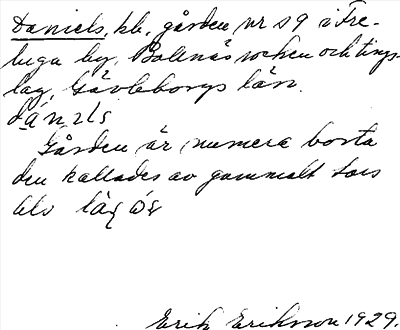 Daniels, kb, gården nr 19 i Tre-
luga by, Bollnäs socken och tings-
lag, Gävleborgs län.
dánzls
Gården är numera borta
den kallades av gammalt
Erik Eriksson 1929.